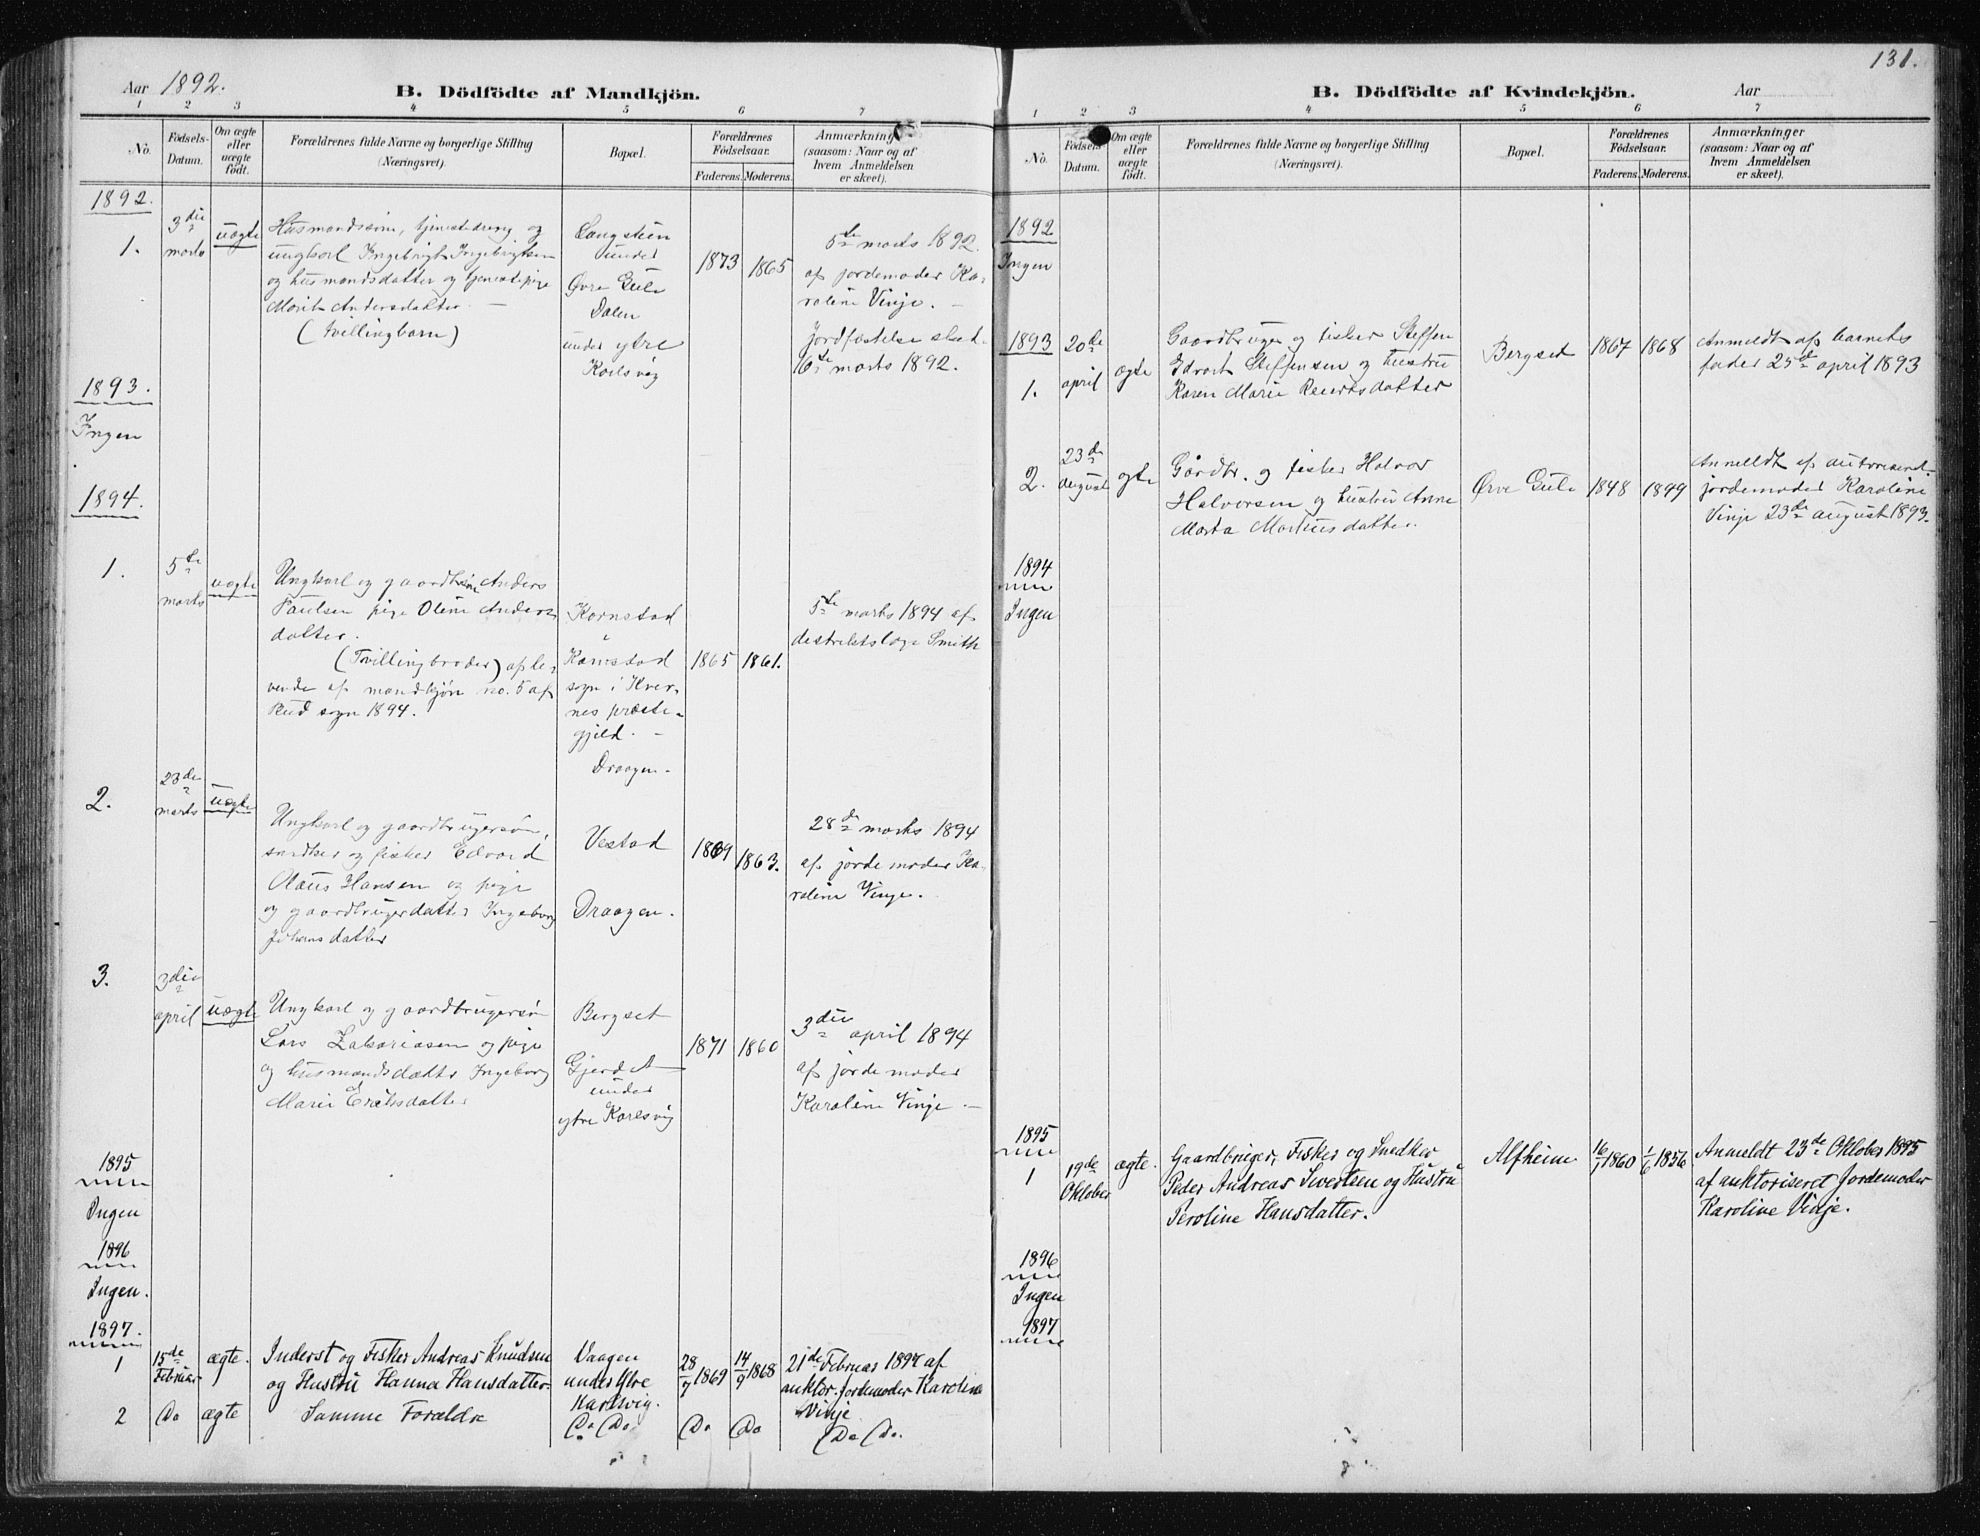 Aar 1892.
B. Dödfödte af Mandkjön.
1 2 3 4 5 6 7
No.
Födsels-Datum.
Om ægte eller uægte födt.
Forældrenes fulde Navne og borgerlige Stilling
(Næringsvei).
Bopæl.
Forældrenes Födselsaar.
Faderens. Moderens.
Anmærkninger
(saasom: Naar og af
hvem Anmeldelsen
er skeet).
1892.
1.
3die
marts
uægte
Husmandssøn, tjenestedreng og
ungkarl Ingebrigt Ingebrigtsen
og husmandsdatter og tjenestepige
Marit Andersdatter. —
(Tvillingbarn)
Langsteen
under
Øvre Gule
Dalen
under ytre
Karlsvig
1873
1865
5te marts 1892.
af jordemoder Ka-
roline Vinje. —
Jordfæstelse skeet
16de marts 1892.
1893.
Ingen
1894.
1.
5te
marts
uægte
Ungkarl og gaardbr.søn Anders
Paulsen pige Oline Anders
datter.
(Tvillingbroder) af le-
vende af mandkjøn no. 5 af
Bud sogn 1894.
Kornstad
i
Kornstad
sogn i Kver-
nes præste-
gjeld. —
Draagen.
1865
1861.
5te marts 1894 af
destriktslæge Smith
2.
23de
marts
uægte
Ungkarl og gaardbrugersøn,
snedker og fisker Edvard
Olaus Hansen og pige
og gaardbrugerdatter Ingeborg
Johansdatter
Vestad
Draagen.
1869
1863.
28de marts 1894
af jordemoder Ka-
roline Vinje.
3.
3die
april
uægte
Ungkarl og gaardbrugersøn
Lars Zakariasen og pige
og husmandsdatter Ingeborg
Marie Eriksdatter
Bergset
Gjerdet
under
ytre Karlsvig
1871
1860
3die april 1894
af jordemoder
Karoline Vinje —
1895
Ingen
1896
Ingen.
1897.
1
15de
Februar
ægte.
Inderst og Fisker Andreas Knudsen
og Hustru Hanna Hansdatter.
Vaagen
under Ytre
Karlsvig.
28/7 1869
14/9 1868
21de Februar 1897 af
auktor. Jordemoder Karoline
Vinje
2
Do
ægte
Samme Forældre
Do Do
Do
Do
Do Do.
131.
B. Dödfödte af Kvindekjön.
Aar
1 2 3 4 5 6 7
No.
Födsels-Datum.
Om ægte eller uægte födt.
Forældrenes fulde Navne og borgerlige Stilling
(Næringsvei).
Bopæl.
Forældrenes Födselsaar.
Faderens. Moderens.
Anmærkninger
(saasom: Naar og af
hvem Anmeldelsen
er skeet).
1892
Ingen
1893
1.
20de
april
ægte
Gaardbruger og fisker Steffen
Edvart Steffensen og hustru
Karen Marie Reiersdatter
Bergset
1867
1868
Anmeldt af barnets
fader 25de april 1893
2.
23de
august
ægte
Gårdbr. og fisker Halvor
Halvorsen og hustru Anne
Marta Markusdatter.
Øvre Gule
1848
1849
Anmeldt af autoriseret
jordemoder Karoline
Vinje 23de august 1893.
1894
Ingen
1895
1
19de
Oktober
ægte.
Gaardbruger, Fisker og Snedker
Peder Andreas Sivertsen og Hustru
Peroline Hansdatter.
Alfheim
16/1 1860
1/6 1856
Anmeldt 23de Oktober 1895
af auktoriseret Jordemoder
Karoline Vinje.
1896
Ingen
1897